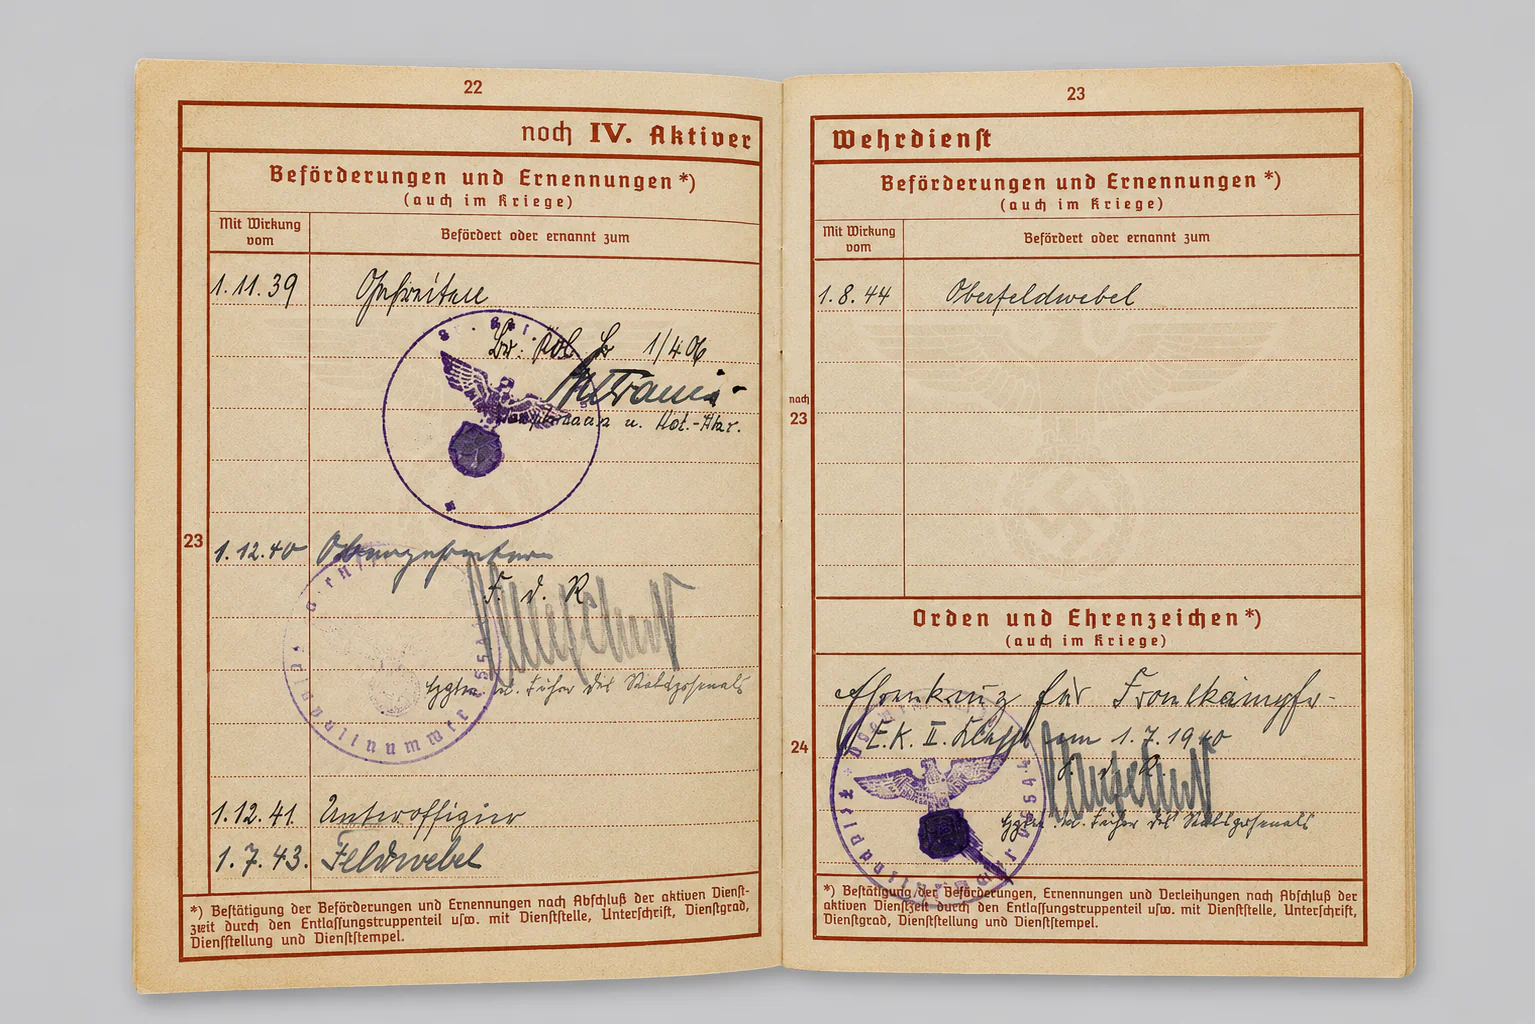 22
noch IV. Aktiver
Beförderungen und Ernennungen *)
(auch im Kriege)
Mit Wirkung vom
Befördert oder ernannt zum
1.11.39 Gefreiten
1/406
u.
23
1.12.40
F. d. R
u. des
1.12.41. Unteroffizier
1.7.43. Feldwebel
*) Bestätigung der Beförderungen und Ernennungen nach Abschluß der aktiven Dienst-
zeit durch den Entlassungstruppenteil usw. mit Dienststelle, Unterschrift, Dienstgrad,
Dienststellung und Dienststempel.
23
Wehrdienst
Beförderungen und Ernennungen *)
(auch im Kriege)
Mit Wirkung vom
Befördert oder ernannt zum
1.8.44 Oberfeldwebel
nach
23
Orden und Ehrenzeichen *)
(auch im Kriege)
Ehrenkreuz für Frontkämpfer
24
E.K. II. Klasse am 1.7.1940
des
*) Bestätigung der Beförderungen, Ernennungen und Verleihungen nach Abschluß der
aktiven Dienstzeit durch den Entlassungstruppenteil usw. mit Dienststelle, Unterschrift,
Dienstgrad, Dienststellung und Dienststempel.